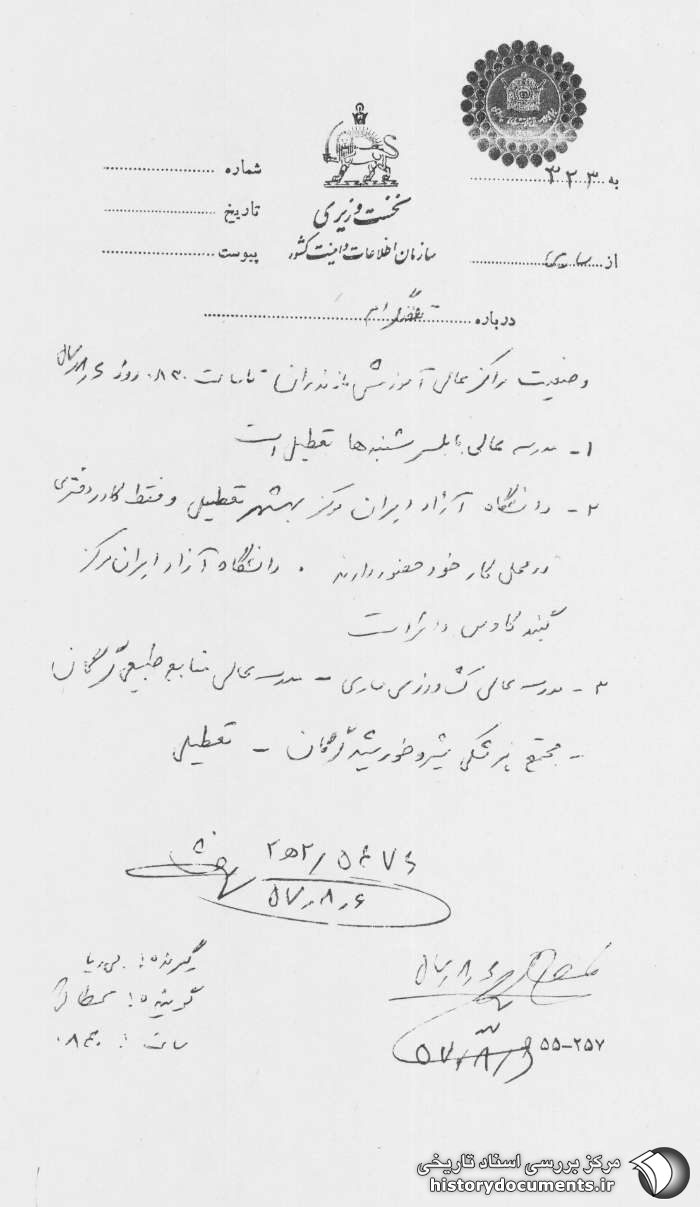 نخست وزیری
سازمان اطلاعات و امنیت کشور
به ۳۲۳
از ساری
شماره
تاریخ
پیوست
درباره تلفنگرام
وضعیت مراکز عالی آموزشی مازندران تا ساعت ۰۸۳۰ روز ۵۷/۸/۶
۱- مدرسه عالی بابلسر شنبه ها تعطیل است
۲- دانشگاه آزاد ایران مرکز بهشهر تعطیل و فقط کادر دفتری
در محل کار خود حضور دارند . دانشگاه آزاد ایران مرکز
گنبد کاوس دائر است
۳- مدرسه عالی کشاورزی ساری - مدرسه عالی منابع طبیعی گرگان
- مجتمع پزشکی شیر و خورشید گرگان - تعطیل
۵۷٫۸٫۶
گیرنده :
گوینده :
ساعت :
۵۷٫۸٫۶
۵۵-۲۵۷
مرکز بررسی اسناد تاریخی
historydocuments.ir